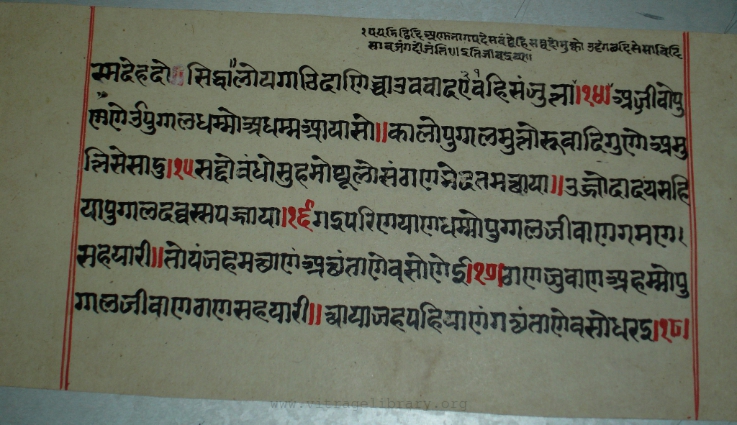 १ पयडिट्ठिदि अणुभागपदेसबंधेहि सव्वदो मुक्को उड्ढं गच्छदि सेसा विदि
सा वज्जं गदिं जंति
म्मदेहदो सिद्धा॥लोयग्गठिदाणिच्चाउववादवएहिसंजुत्ता।१४।अज्जीवोपु
णणेउपुग्गलधम्मोअधम्मआयासो॥कालोपुग्गलमुत्तोरूवादिगुणोअमु
त्तिसेसादु।१५सद्दोबंधोसुहमोथूलोसंठाणभेदतमच्छाया॥उज्जोदादवसहि
यापुग्गलदव्वस्सपज्जाया।१६।गइपरिणयाणधम्मोपुग्गलजीवाणगमण
सहयारी॥तोयंजहमच्छाणंअच्छंताणेवसोणेई।१७।ठाणजुदाणअहम्मोपु
ग्गलजीवाणठाणसहयारी॥छायाजहपहियाणंगच्छंताणेवसोधरइ।१८।
www.vitragelibrary.org